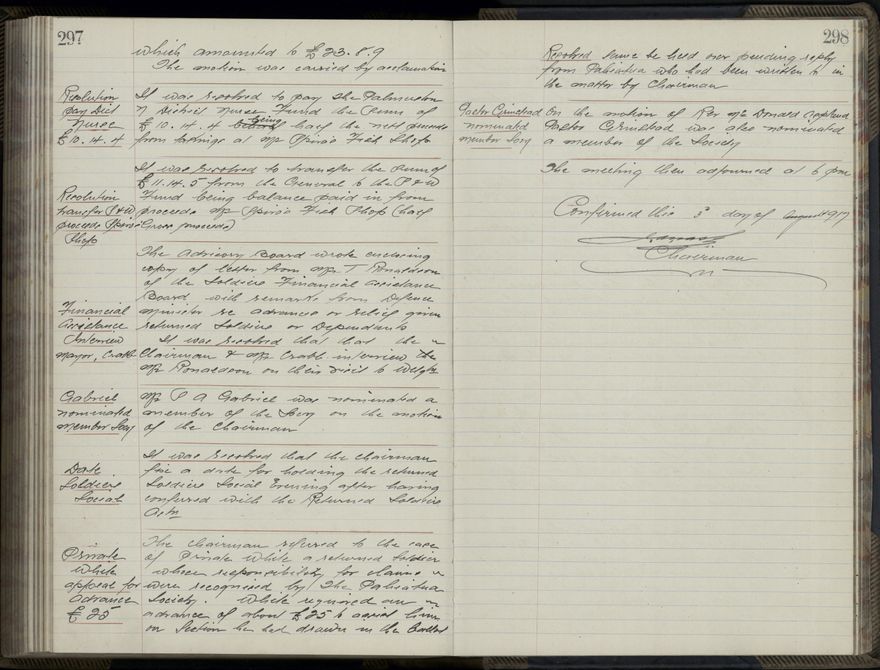 297
which amounted to £23.8.9
The motion was carried by acclamation
Resolution
pay Dist
Nurse
£10.14.4
It was resolved to pay the Palmerston
N District Nurse Fund the sum of
£10.14.4 being half the nett proceeds
from takings at Mr Spiro's Fish Shop
Resolution
transfer P & W
proceeds Spiro's
Shop
It was resolved to transfer the sum of
£11.14.5 from the General to the P & W
Fund being balance paid in from
proceeds Mr Spiro's Fish Shop (half
Gross proceeds)
Financial
Assistance
Interview
Mayor, Crabb
The Advisory Board wrote enclosing
copy of letter from Mr T Ronaldson
of the Soldiers Financial Assistance
Board with remarks from Defence
Minister re advances or relief given
returned Soldiers or Dependants
It was resolved that that the
Chairman & Mr Crabb interview the
Mr Ronaldson on their visit to Wellgtn
Gabriel
nominated
member Socy
Mr P A Gabriel was nominated a
member of the Socy on the motion
of the Chairman
Date
Soldiers
Social
It was resolved that the Chairman
fix a date for holding the returned
Soldiers Social Evening after having
conferred with the Returned Soldiers
Actn
Private
White
appeal for
Advance
£25
The Chairman referred to the case
of Private White a returned Soldier
whose responsibility for claims
were recognised by the Pahiatua
Society. White required an
advance of about £25 to assist him
on Section he had drawn in the Ballot
298
Resolved same be held over pending reply
from Pahiatua who had been written to in
the matter by Chairman
Pastor Grinstead
nominated
member Socy
On the motion of Rev Mr Donald
Pastor Grinstead was also nominated
a member of the Society
The meeting then adjourned at 6 pm
Confirmed this 3 day of August 1917
Chairman